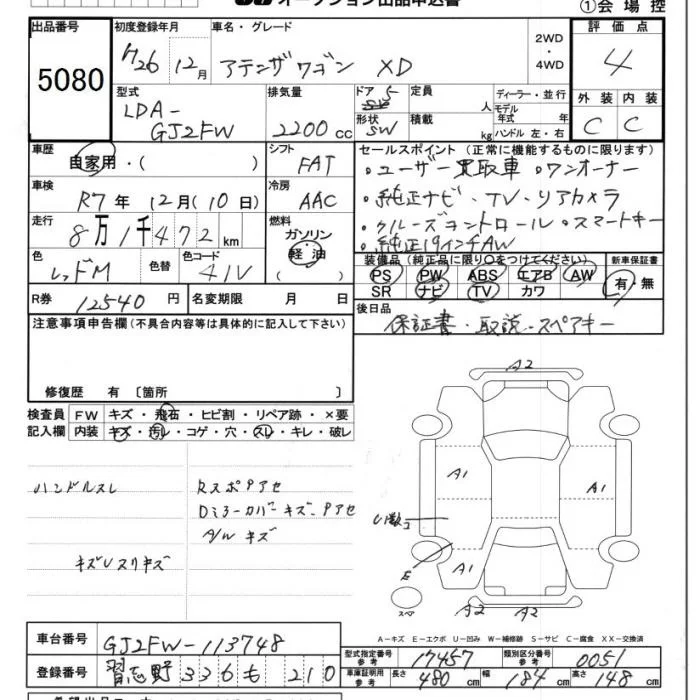 オークション出品申込書
①会場控
出品番号 初度登録年月 車名・グレード 2WD・4WD 評価点
5080
H26 12月 アテンザワゴン XD
4
型式 排気量 ドア 5 定員 人 ディーラー・並行 外装 内装
LDA-GJ2FW
2200cc
形状 SW 積載 kg モデル年式 年式 ハンドル 左・右
C C
車歴 自家用・( ) シフト FAT
車検 R7年 12月(10日) 冷房 AAC
走行 8万1千472km 燃料 ガソリン 軽油
色 レッドM 色替 色コード 41V
R券 12540円 名変期限 月 日
セールスポイント (正常に機能するものに限ります)
・ユーザー買取車 ・ワンオーナー
・純正ナビ・TV・リアカメラ
・クルーズコントロール ・スマートキー
・純正19インチAW
装備品 (純正品に限り○をつけてください) 新車保証書
PS PW ABS エアB AW
SR ナビ TV カワ
有・無
後日品
保証書・取説・スペアキー
注意事項申告欄(不具合内容等は具体的に記入して下さい)
修復歴 有 〔箇所 〕
検査員 FW キズ・飛石・ヒビ割・リペア跡・×要
記入欄 内装 キズ・汚レ・コゲ・穴・スレ・キレ・破レ
ハンドルスレ
RスポPアセ
Dミラーカバーキズ・Pアセ
A/W キズ
キズUスリキズ
A2
A1 A1
E
A1
スペア
A2 A2
A-キズ E-エクボ U-凹み W-補修跡 S-サビ C-腐食 XX-交換済
車台番号 GJ2FW-113748
登録番号 習志野 336 も 210
型式指定番号 参考 17457 類別区分番号 参考 0051
車庫証明用 参考 長さ 480cm 幅 184cm 高さ 148cm